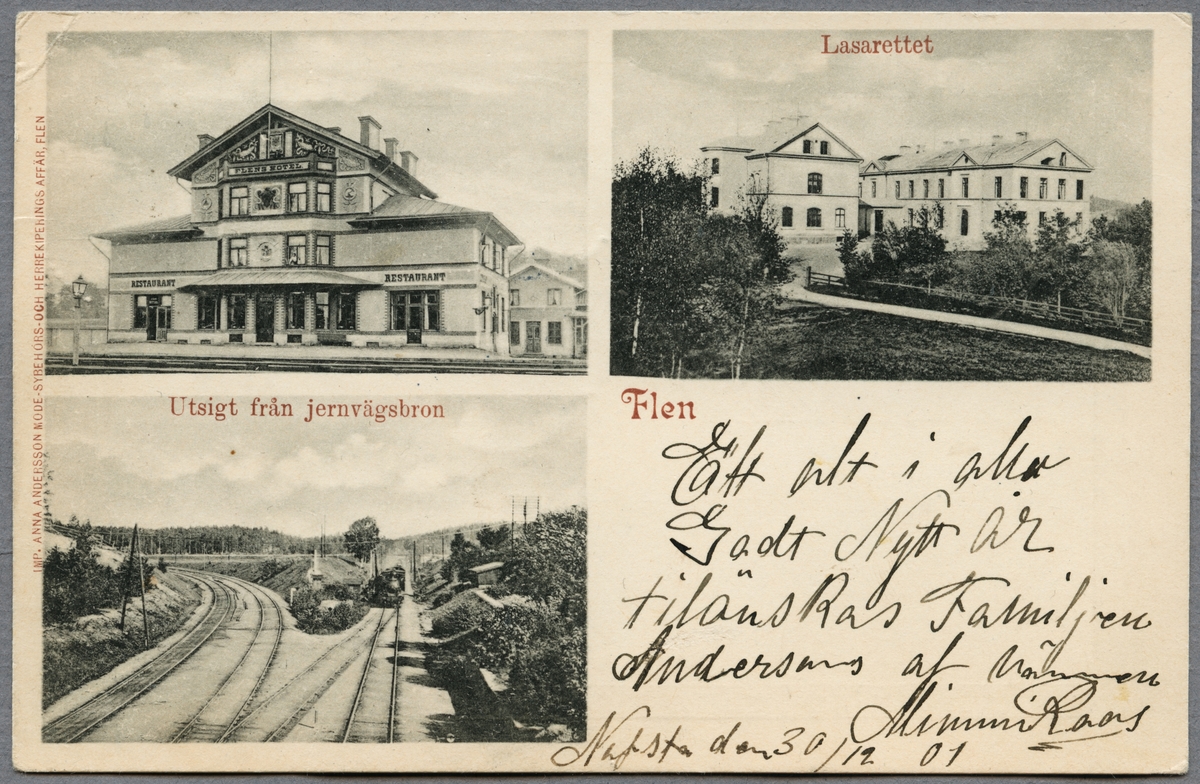 IMP. ANNA ANDERSSON MODE-SYBEHÖRS- OCH HERREKIPERINGS AFFÄR, FLEN
FLENS HOTEL
RESTAURANT
RESTAURANT
Lasarettet
Utsigt från jernvägsbron
Flen
Ett alt i alla
Godt Nytt År
tilönskas Familjen
Andersons af vännen
Mimmi Roos
den 30/12 01